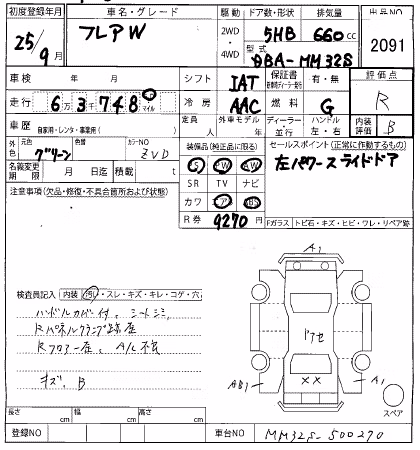 初度登録年月 車名・グレード 駆動 ドア数・形状 排気量 出品NO
25/9月 フレPW 2WD・4WD 5HB 660cc 2091
型式 DBA-MM32S
車検 年 月 シフト IAT 保証書 有・無 評価点
走行 6万3千748 マイル 冷房 AAC 燃料 G R
車歴 自家用・レンタ・事業用( ) 定員 人 外車モデル 年 ディーラー・並行 ハンドル 左・右 内装評価 B
外色 元色 グリーン 色替 カラーNO ZVD
装備品(純正品に限る) セールスポイント(正常に作動するもの)
名義変更期限 月 日迄 積載 t
S PW AW 左パワースライドドア
SR TV ナビ
注意事項(欠品・修復・不具合箇所および状態)
カワ
R券 9270円
Fガラス トビ石・キズ・ヒビ・ワレ・リペア跡
A1
検査員記入 内装 汚レ・スレ・キズ・キレ・コゲ・穴
ハンドルカバー付、シートシミ
Rパネルクランプ跡座
Rフロアー座、A/C不良
キズ、B
ドアセ
××
AB1
A1
スペア
長さ cm 幅 cm 高さ cm
登録NO 車台NO MM32S-500270